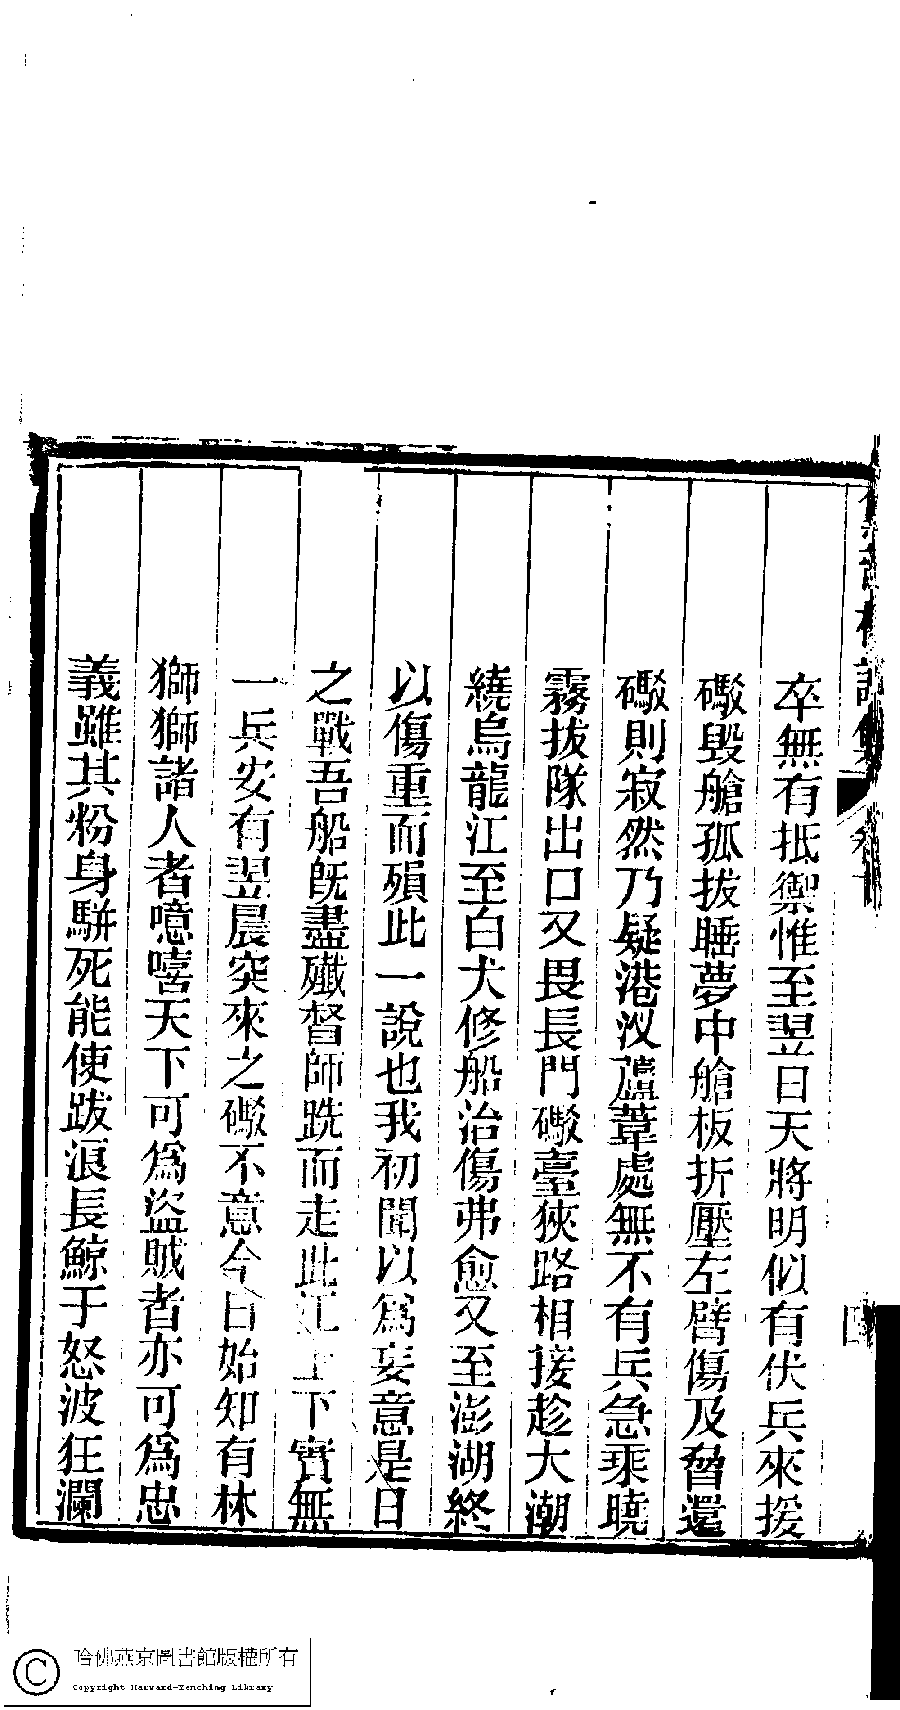 卒無有抵禦惟至翌日天將明似有伏兵來援
礮毀艙孤拔睡夢中艙板折壓左臂傷及脅還
礮則寂然乃疑港汊蘆葦處無不有兵急乘曉
霧拔隊出口又畏長門礮臺狹路相接趁大潮
繞烏龍江至白犬修船治傷弗愈又至澎湖終
以傷重而殞此一說也我初聞以爲妄意是日
之戰吾船旣盡殲督師跣而走此江上下實無
一兵安有翌晨突來之礮不意今日始知有林
獅獅諸人者噫嘻天下可爲盜賊者亦可爲忠
義雖其粉身騈死能使跋浪長鯨于怒波狂瀾
哈佛燕京圖書館版權所有
Copyright Harvard-Yenching Library